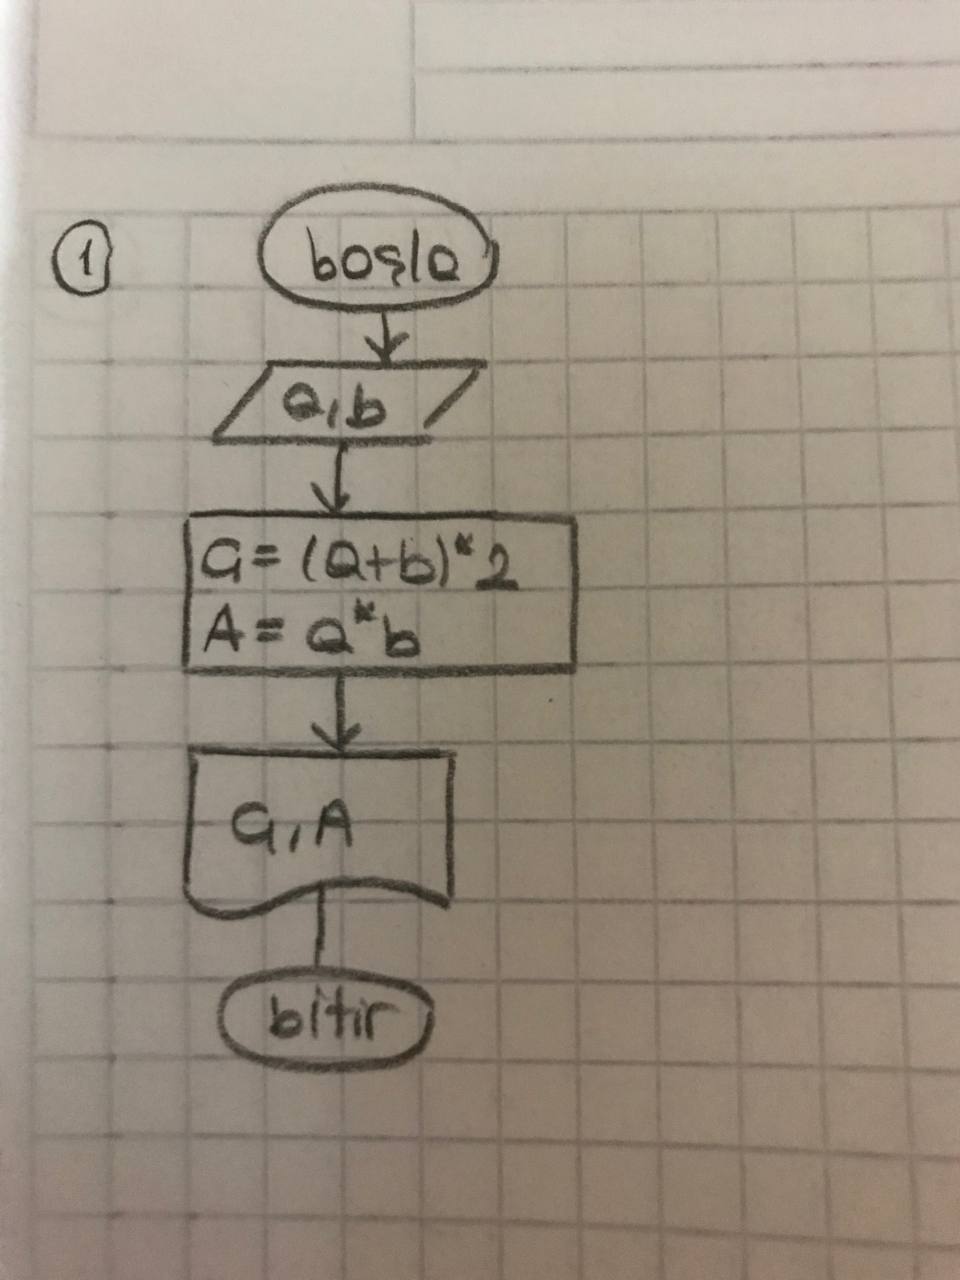 1
başla
a, b
Ç = (a+b)*2
A = a*b
Ç, A
bitir